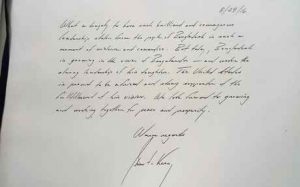 8/29/16
What a tragedy to have such brilliant and courageous
leadership stolen from the people of Bangladesh in such a
moment of violence and cowardice. But today, Bangladesh
is growing in the vision of Bangabandhu and under the
strong leadership of his daughter. The United States
is proud to be a friend and strong supporter of the
fulfillment of his vision. We look forward to growing
and working together for peace and prosperity.
Warm regards